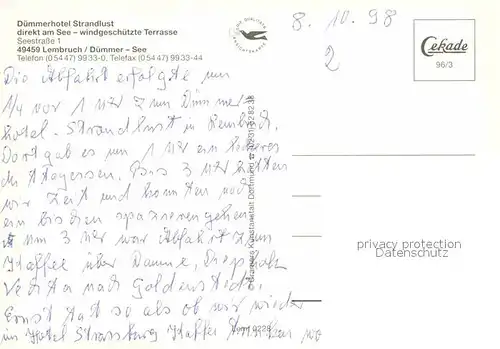 Dümmerhotel Strandlust
direkt am See – windgeschützte Terrasse
Seestraße 1
49459 Lembruch / Dümmer – See
Telefon (0 54 47) 99 33-0, Telefax (0 54 47) 99 33-44
8. 10. 98
2
Cekade
96/3
Die Abfahrt erfolgte um
1/4 vor 1 Uhr zum Dümmer
hotel - Strandlust in Lembruch.
Dort gab es um 1 Uhr ein
Mittagessen. Bis 3 Uhr hatten
wir Zeit und konnten noch
ein bischen spazierengehen.
Um 3 Uhr war Abfahrt zum
Kaffee über Damme, Diepholz
Vechta nach Goldenstedt.
Ernst tat so als ob wir wieder
im Hotel Strassburg Kaffee trinken wo
privacy protection
Datenschutz